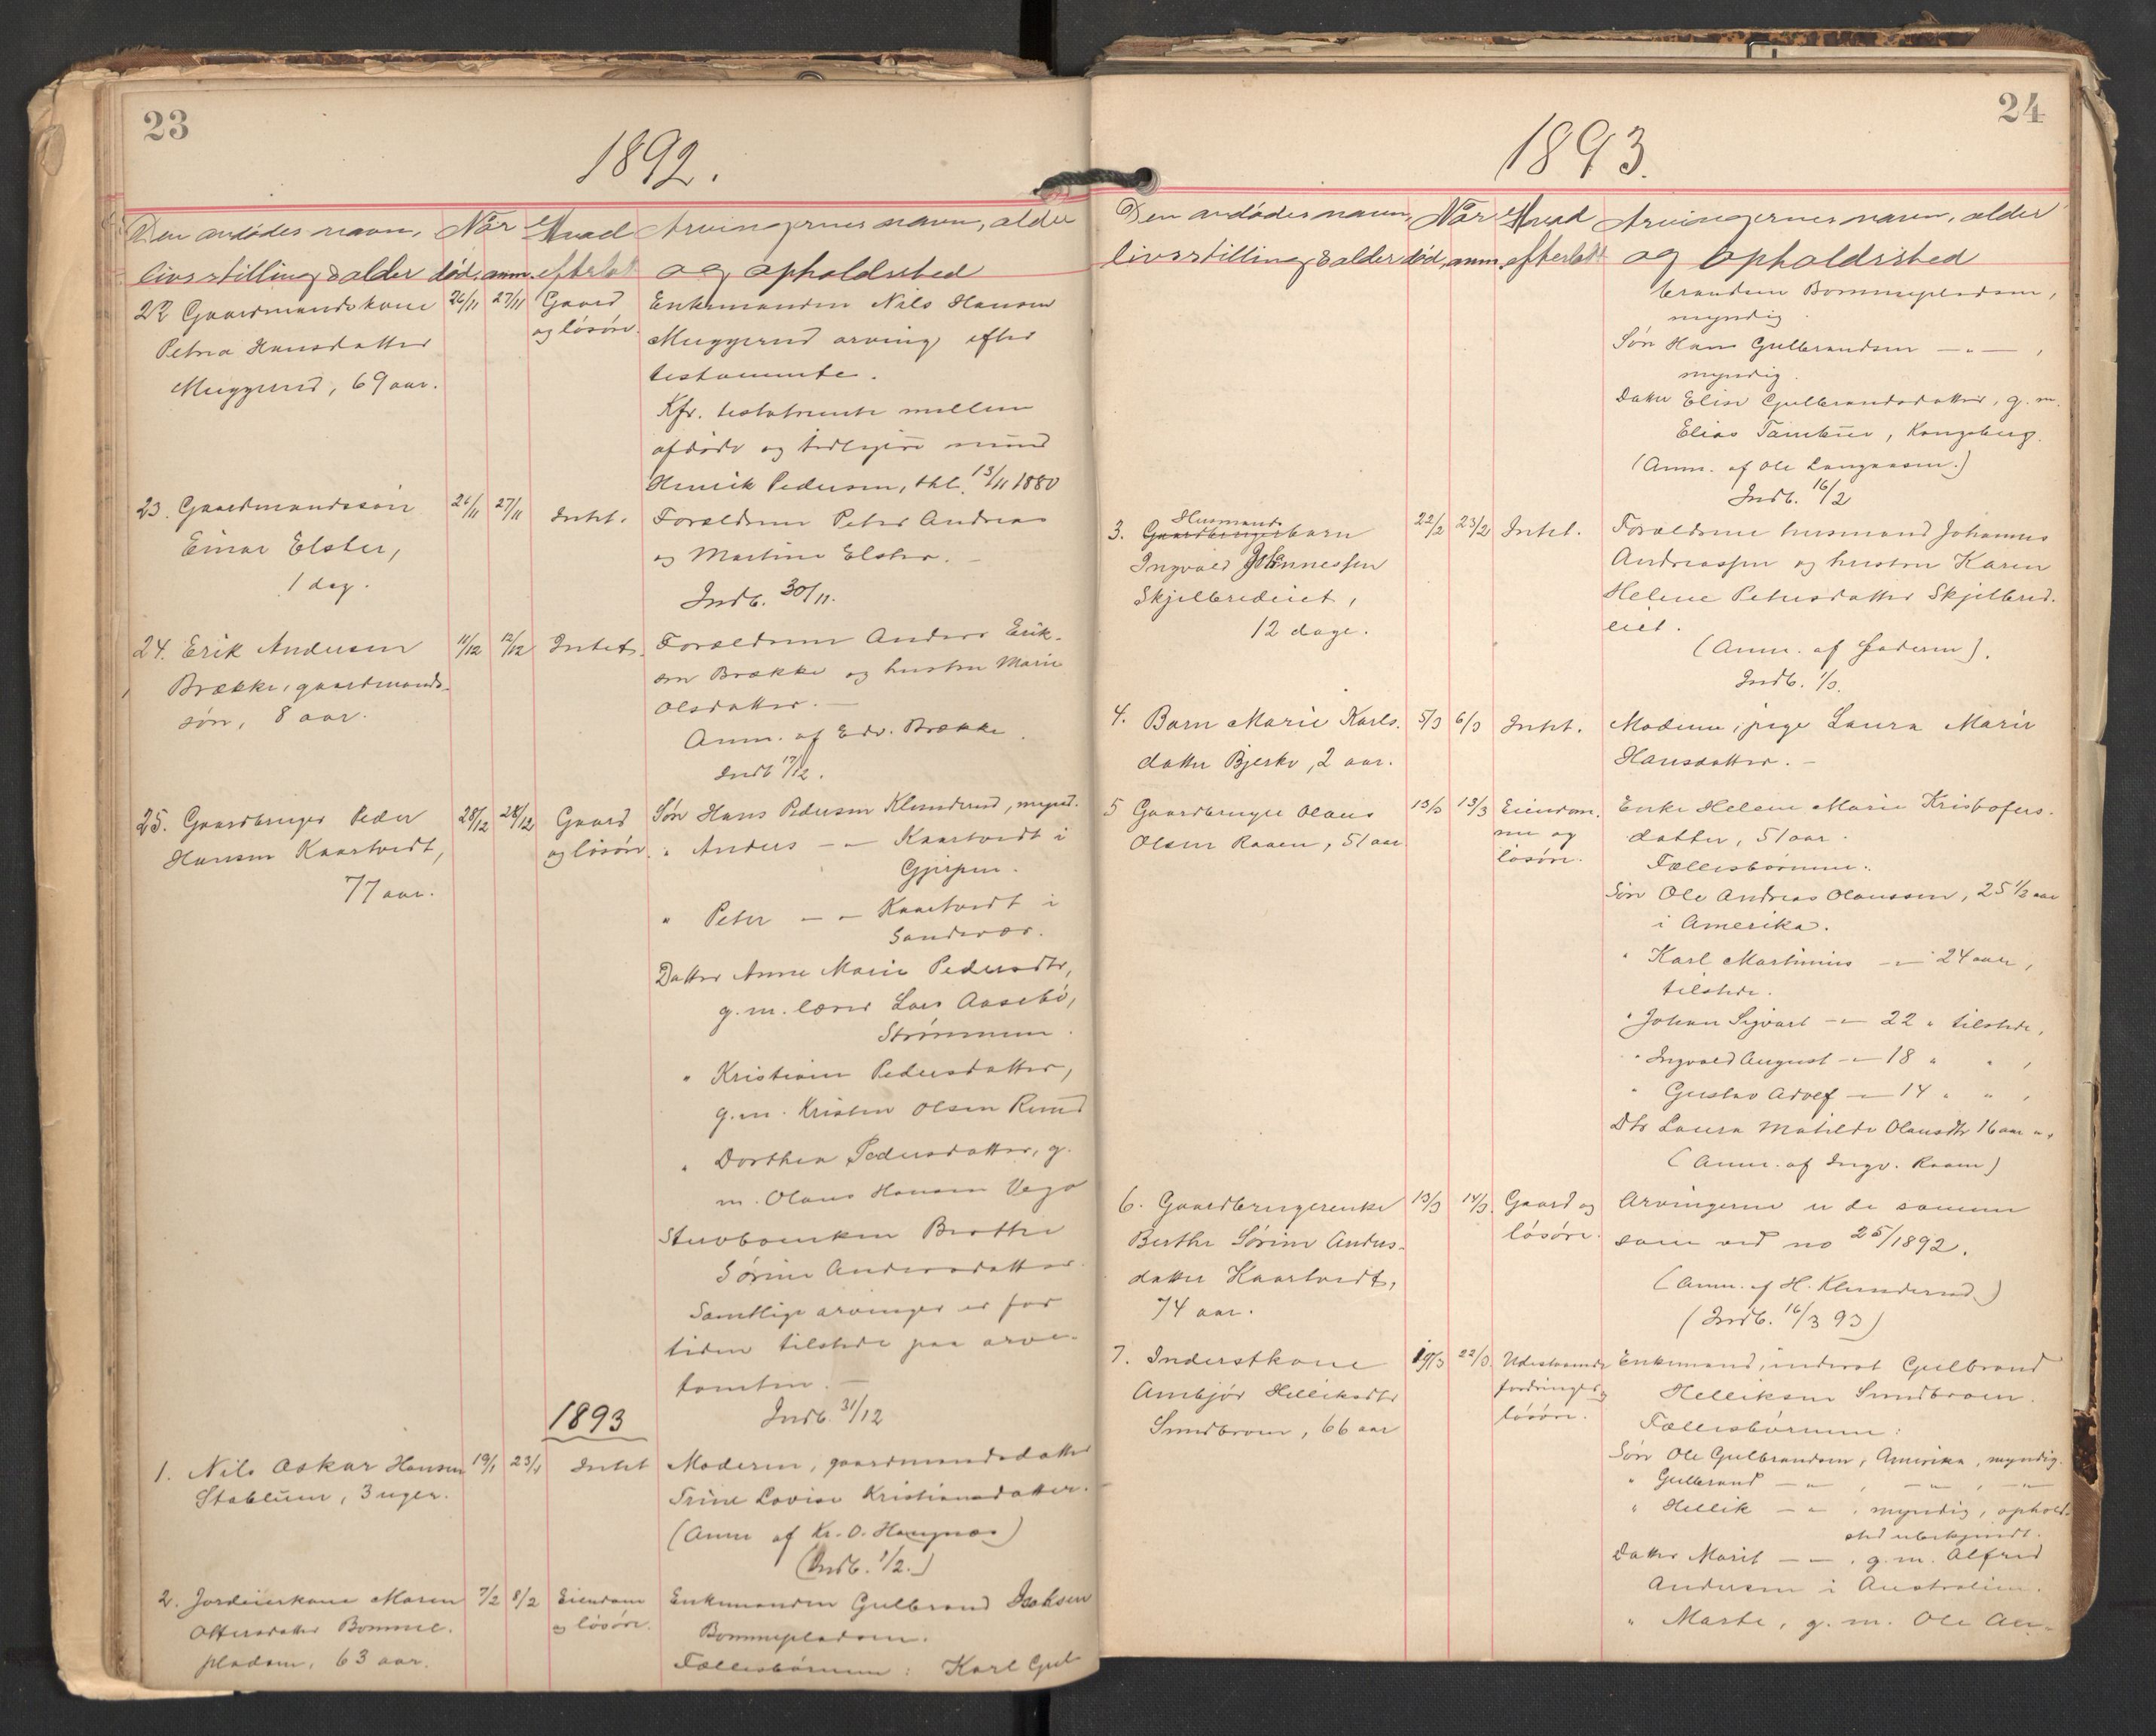 23
1892.
Den avdødes navn, Når Hvad Arvingernes navn, alder
livsstilling & alder død, anm. efterlatt og opholdssted
22 Gaardmandskone 26/11 27/11 Gaard Enkemanden Nils Hansen
Petrea Hansdatter og løsøre. Muggerud arving efter
Muggerud, 69 aar. testamente.
Kfr. testamente mellem
afdøde og tidligere mand
Henrik Pedersen, thl. 13/11 1880
23. Gaardmandssøn 26/11 27/11 Intet. Forældrene Peter Andreas
Einar Elster, og Martine Elster. —
1 dag. Indb. 30/11.
24. Erik Andersen 11/12 12/12 Intet. Forældrene Anders Erik-
Brække, gaardmands- sen Brække og hustru Marie
søn, 8 aar. Olsdatter. —
Anm. af Edv. Brække.
Indb 17/12.
25. Gaardbruger Peder 28/12 28/12 Gaard Søn Hans Pedersen Klunderud, mynd.
Hansen Kaartvedt, og løsøre. " Anders — " — Kaartvedt i
77 aar. Gjerpen.
" Peter — " — Kaartvedt i
Sandsvær.
Datter Anne Marie Pedersdtr,
g. m. lærer Lars Aasebø,
Strømmen.
" Kristiane Pedersdatter,
g. m. Kristen Olsen Ruud
" Dorthea Pedersdatter, g.
m. Olaus Hansen Vega
Stervboenken Berthe
Sørine Andersdatter.
Samtlige arvinger er for
tiden tilstede paa arve-
tomten. —
Indb. 31/12
1893
1. Nils Oskar Hansen 19/1 23/1 Intet Moderen, gaardmandsdatter
Stablum, 3 uger. Trine Lovise Kristiansdatter.
(Anm af Kr. O. Hougnæs)
(Indb. 1/2.)
2. Jordeierkone Maren 7/2 8/2 Eiendom Enkemanden Gulbrand Isaksen
Ottersdatter Bomme- og løsøre. Bommepladsen.
pladsen, 63 aar. Fællesbørnene: Karl Gul-
24
1893.
Den avdødes navn, Når Hvad Arvingernes navn, alder
livsstilling & alder død, anm. efterlatt og opholdssted
brandsen Bommepladsen,
myndig.
Søn Hans Gulbrandsen — " — ,
myndig.
Datter Elise Gulbrandsdatter, g. m.
Elias Tambur, Kongsberg.
(Anm. af Ole Langaasen.)
Indb. 16/2
Husmands
3. Gaardbrugerbarn 22/2 23/2 Intet. Forældrene husmand Johannes
Ingvald Johannessen Andreassen og hustru Karen
Skjelbredeiet, Helene Petersdatter Skjelbred-
12 dage. eiet.
(Anm. af faderen).
Indb. 1/3.
4. Barn Marie Karls- 5/3 6/3 Intet. Moderen, pige Laura Marie
datter Bjerke, 2 aar. Hansdatter. —
5 Gaardbruger Olaus 13/3 13/3 Eiendom- Enke Helene Marie Kristofers-
Olsen Raaen, 51 aar me og datter, 51 aar.
løsøre. Fællesbørnene:
Søn Ole Andreas Olaussen, 25 1/2 aar
i Amerika.
" Karl Martinius — " — 24 aar,
tilstede.
" Johan Sigvart — " — 22 " tilstede,
" Ingvald August — " — 18 " " ,
" Gustav Adolf — " — 14 " " ,
Dtr Laura Matilde Olausdtr 16 aar " .
(Anm. af Ingv. Raaen)
6. Gaardbrugerenke 13/3 14/3 Gaard og Arvingerne er de samme
Berthe Sørine Anders- løsøre. som ved no 25/1892.
datter Kaartvedt, (Anm. af H. Klunderud)
74 aar. (Indb. 16/3 93)
7. Inderstkone 19/3 22/3. Udestaaende Enkemand, inderst Gulbrand
Ambjør Helliksdtr fordringer og Helliksen Sundbroen.
Sundbroen, 66 aar løsøre. Fællesbørnene:
Søn Ole Gulbrandsen, Amerika, myndig.
" Gulbrand — " — , — " — , — " —
" Hellik — " — , myndig, ophold-
sted ubekjendt.
Datter Marit — " — , g. m. Alfred
Andersen i Australien.
" Marte, g. m. Ole An-